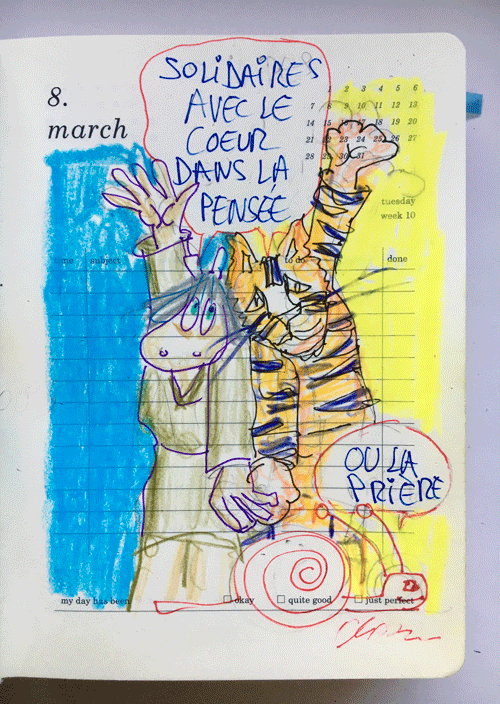 SOLIDAIRES
AVEC LE
COEUR
DANS LA
PENSÉE
8.
march
1 2 3 4 5 6
7 8 9 10 11 12 13
14 15 16 17 18 19 20
21 22 23 24 25 26 27
28 29 30 31
tuesday
week 10
subject
to do
done
OU LA
PRIÈRE
my day has been
okay
quite good
just perfect